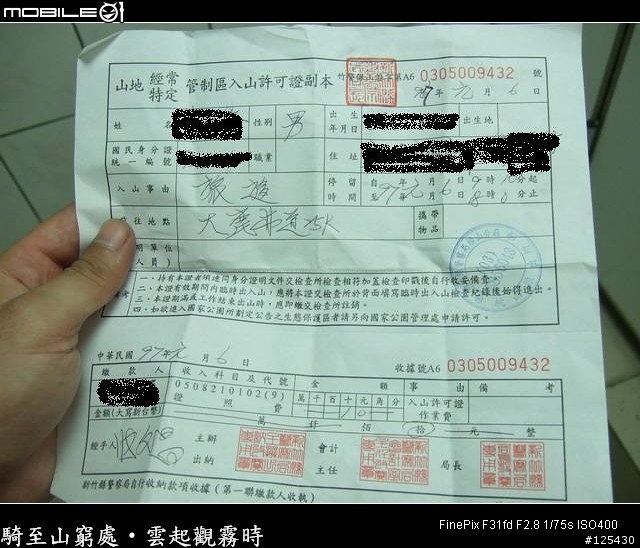 MOBILE01
山地 經常 特定 管制區入山許可證副本
竹警保山證字第A6 0305009432 號
97年元月6日
姓名 性別 男 出生年月日 出生地
國民身分證統一編號 職業 住址
入山事由 旅遊 停留時間 自97年元月6日9時 分起
至97年元月6日 時 分止
前往地點 大鹿林道15K 攜帶物品
一、持有本證者須連同身分證明文件交檢查所檢查相符加蓋檢查印戳後自行收妥備查。
二、本證有效期間內臨時出入山,應將本證交檢查所於背面填寫臨時出入山檢查紀錄後始得進出。
三、本證期滿或工作結束出山時,應即繳交檢查所註銷。
四、如欲進入國家公園所劃定公告之生態保護區者請另向國家公園管理處申請許可。
中華民國97年元月6日 收據號A6 0305009432
繳款人 收入科目及代號 金額 事由 備考
0508210102(9) 萬千百十元角分 入山許可證
證照費 10 作業費
金額(大寫新台幣) 萬 仟 佰 (拾) 元 整
經手人 主辦出納 會計主任 局長
新竹縣警察局自行收納款項收據(第一聯繳款人收執)
騎至山窮處・雲起觀霧時
FinePix F31fd F2.8 1/75s ISO400
#125430